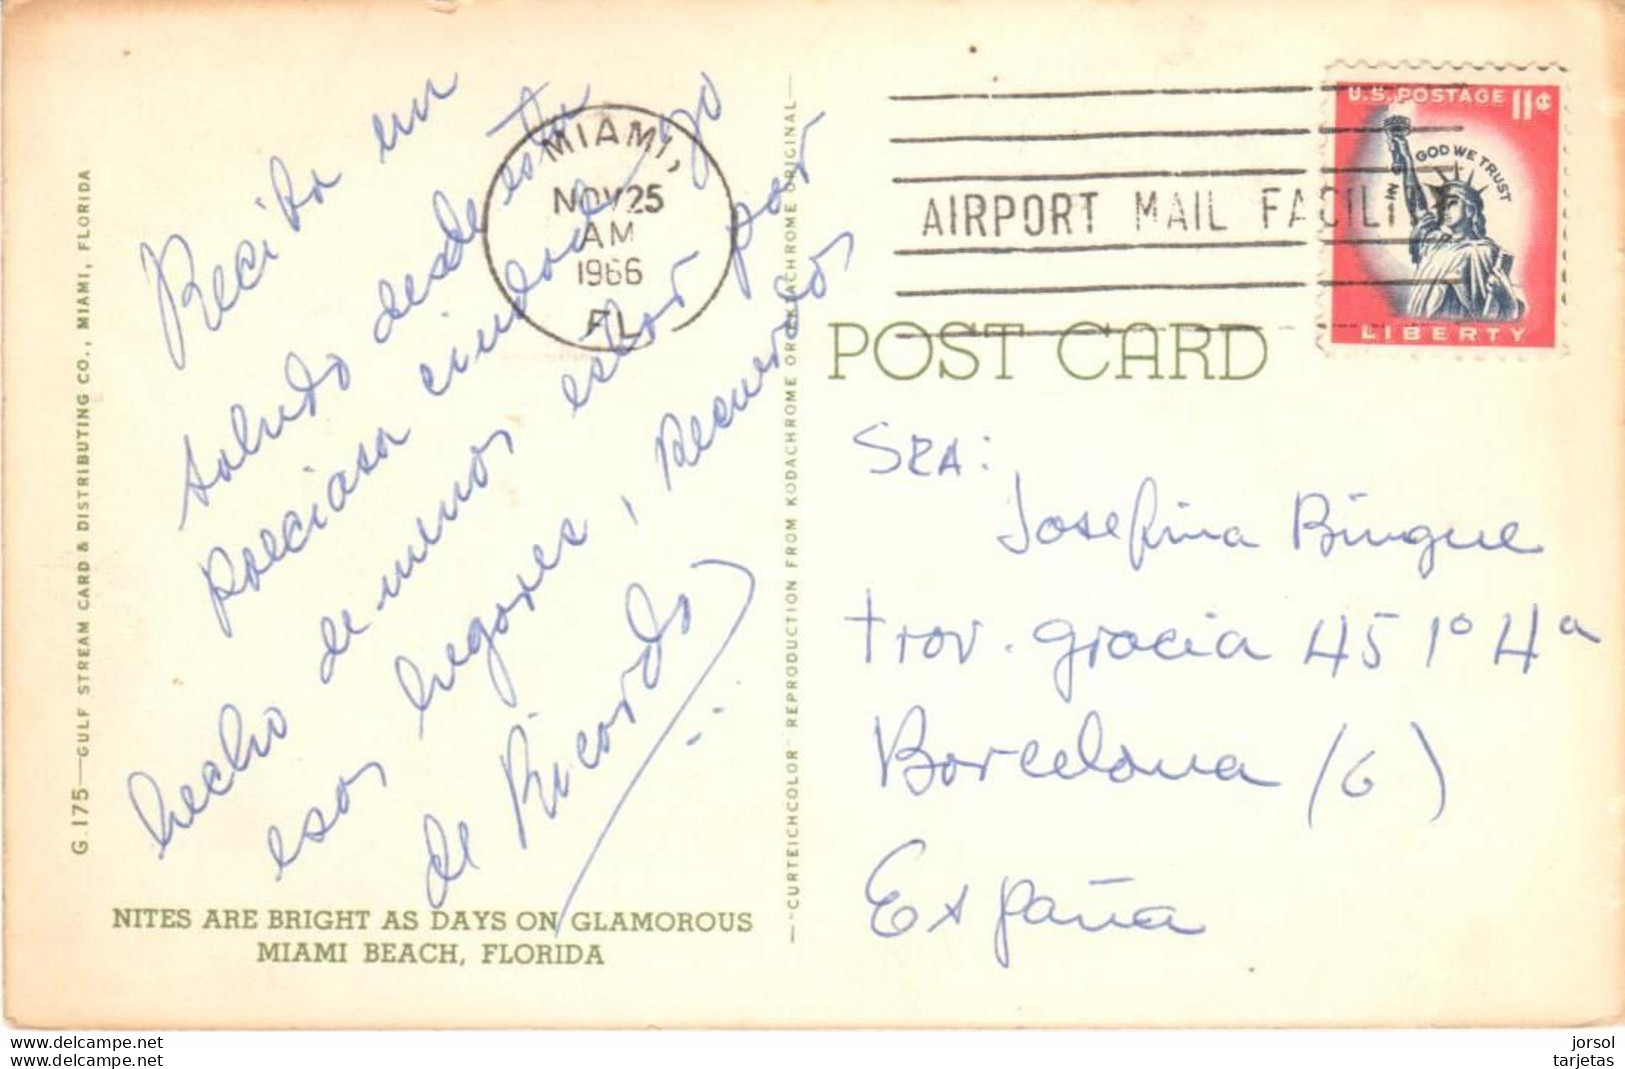 G.175—GULF STREAM CARD & DISTRIBUTING CO., MIAMI, FLORIDA
Reciba un
saludo desde esta
preciosa ciudad, yo
hecho de menos estar por
esos lugares, recuerdos
de Ricardo
NITES ARE BRIGHT AS DAYS ON GLAMOROUS
MIAMI BEACH, FLORIDA
MIAMI,
NOV 25
AM
1966
FL
—"CURTEICHCOLOR" REPRODUCTION FROM KODACHROME OR EKTACHROME ORIGINAL—
AIRPORT MAIL FACILI
U.S. POSTAGE 11¢
IN GOD WE TRUST
LIBERTY
POST CARD
SRA:
Josefina Bingue
trav. gracia 45 1º 4ª
Barcelona (6)
España
delcampe.net
delcampe.net
jorsol
tarjetas